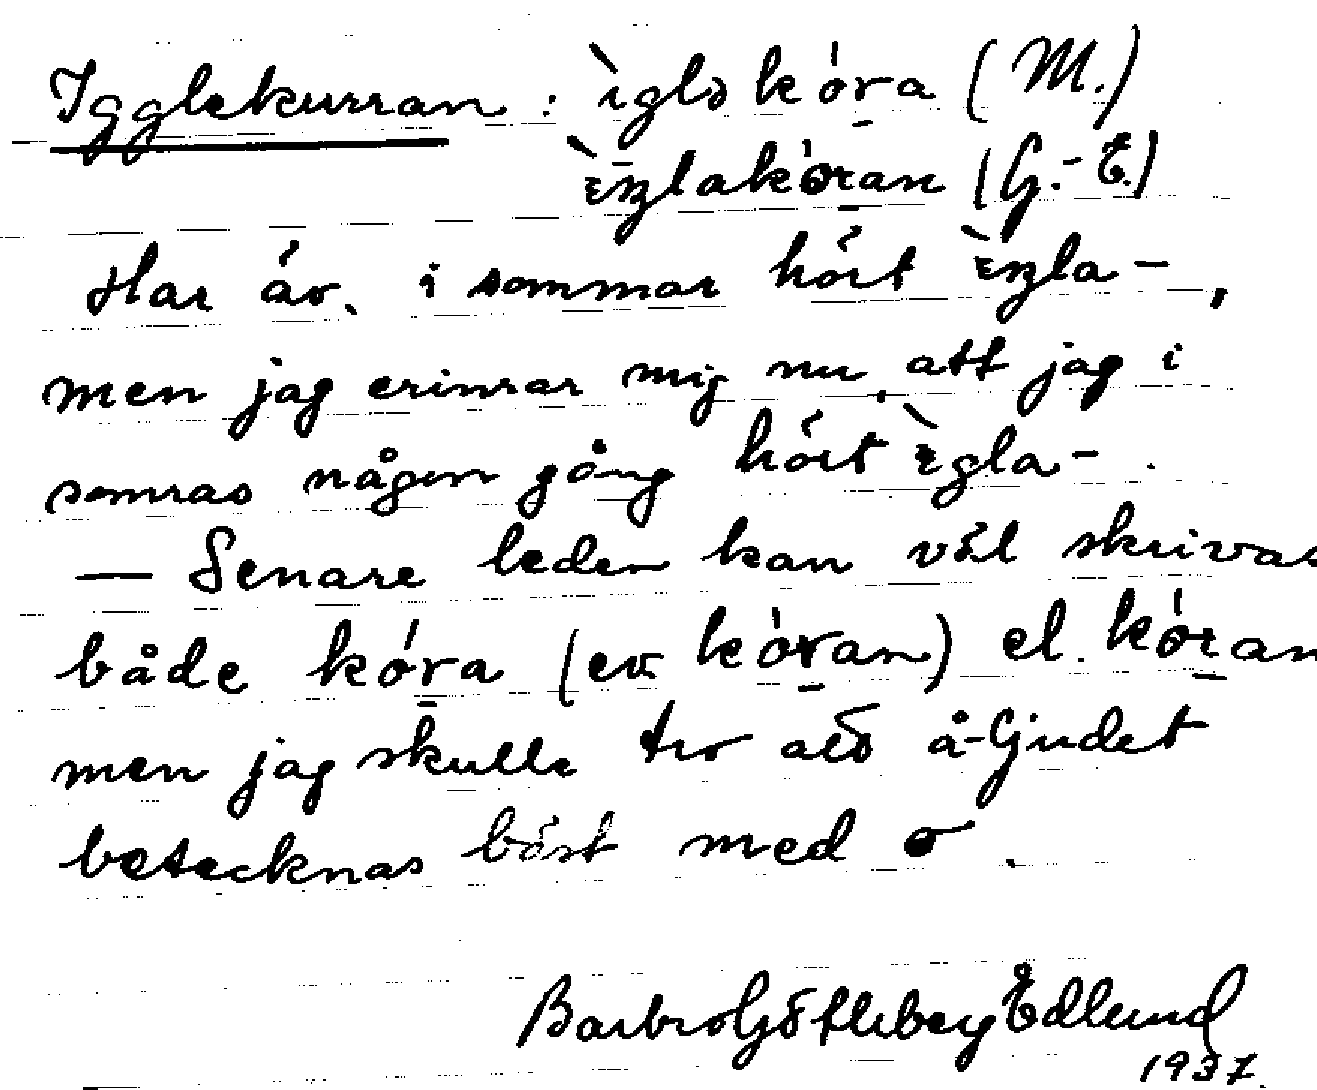 Igglekurran : ìglə kóra (M.)
ɛ̀ŋlakóran (G.-E.)
Har äv. i sommar hört ɛ̀ŋla-,
men jag erinrar mig nu, att jag i
somras någon gång hört ɛ̀gla- .
— Senare leden kan väl skrivas
både kóra (ev. kóran) el. kóran
men jag skulle tro att å-ljudet
betecknas bäst med o .
Barbro Götleberg Edlund
1937.